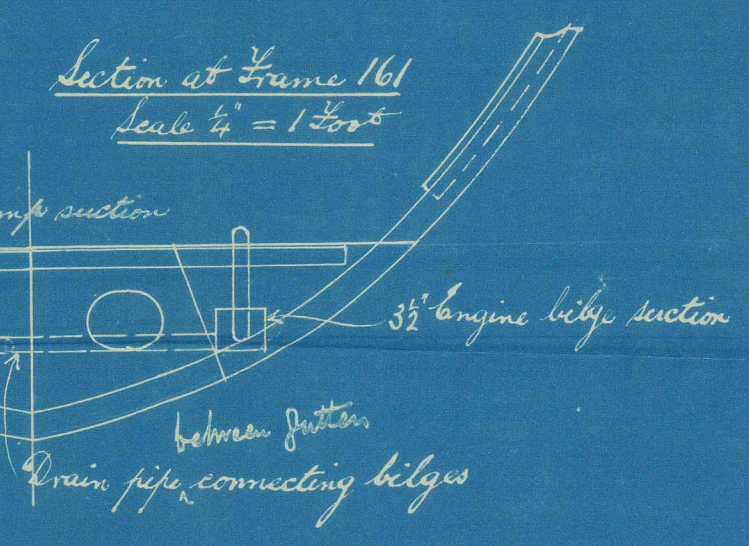 Section at Frame 161
Scale ¼" = 1 Foot
suction
3½" Engine bilge suction
between
Drain pipe ‸ connecting bilges